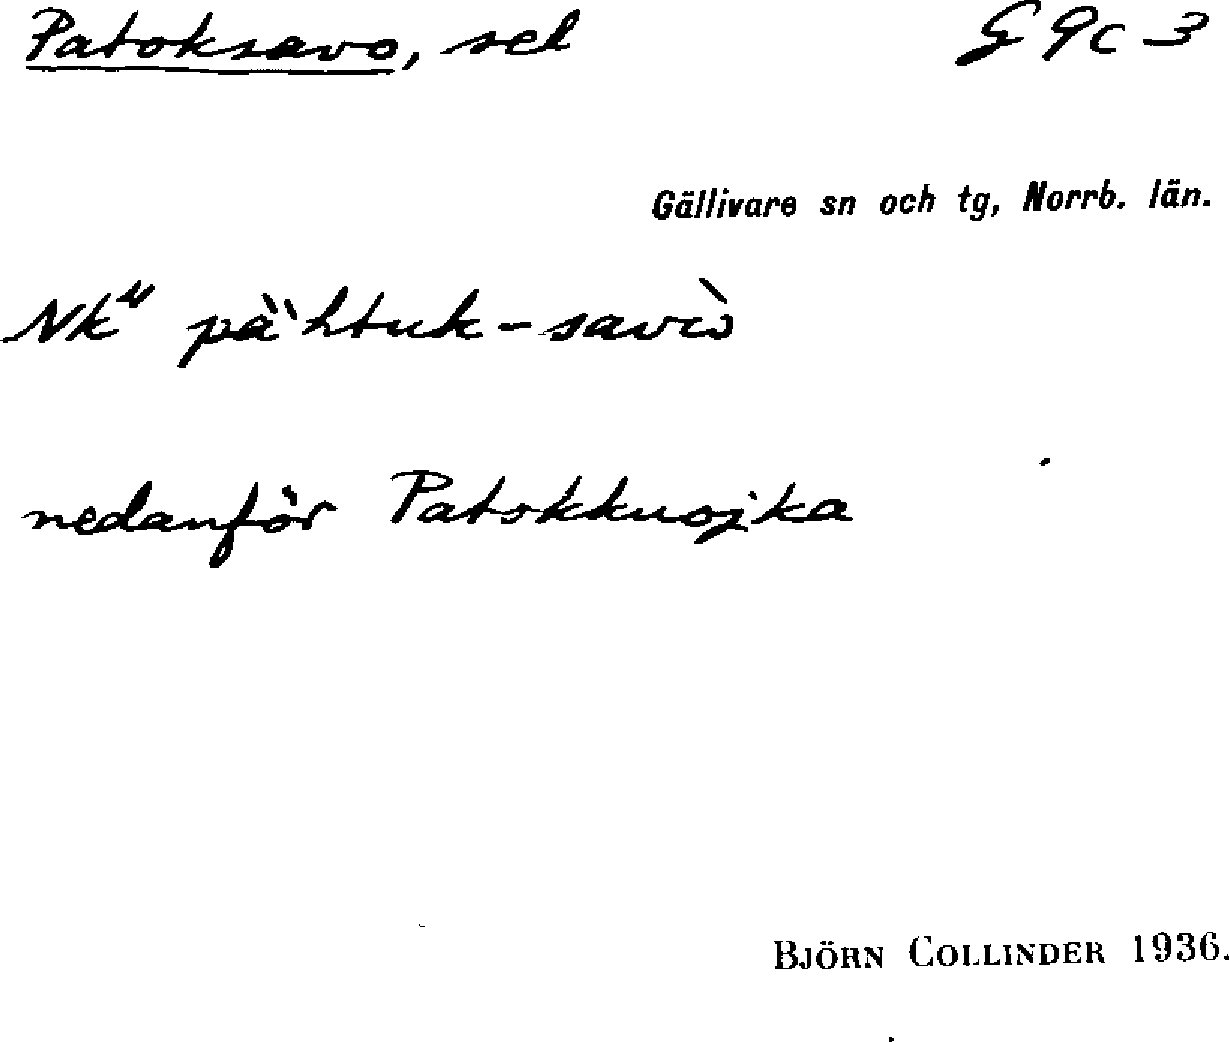 Patoksavo, sel G 9c 3
Gällivare sn och tg, Norrb. län.
Nk" pà`htuk-savò
nedanför Patokkuojka
BJÖRN COLLINDER 1936.